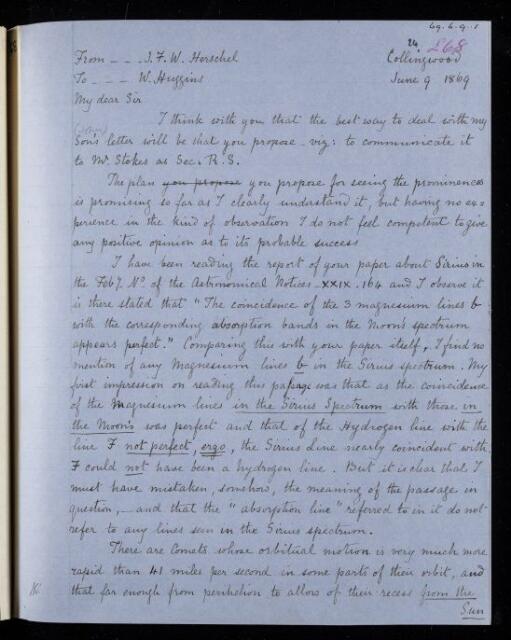 69.6.9.1
24. L68
From _ _ . J. F. W. Herschel Collingwood
To _ _ _ W. Huggins June 9 1869
My dear Sir
I think with you that the best way to deal with my
Son's letter will be that you propose _ viz: to communicate it
to Mr Stokes as Sec. R. S.
The plan you propose you propose for seeing the prominences
is promising so far as I clearly understand it, but having no ex=
perience in the kind of observation I do not feel competent to give
any positive opinion as to its probable success
I have been reading the report of your paper about Sirius in
the Feby. No. of the Astronomical Notices _ XXIX. 164 and I observe it
is there stated that "The coincidence of the 3 magnesium lines b
with the corresponding absorption bands in the Moon's spectrum
appears perfect." Comparing this with your paper itself, I find no
mention of any Magnesium lines b in the Sirius spectrum. My
first impression on reading this passage was that as the coincidence
of the Magnesium lines in the Sirius Spectrum with those in
the Moon's was perfect and that of the Hydrogen line with the
line F not perfect, ergo, the Sirius line nearly coincident with
F could not have been a hydrogen line. But it is clear that I
must have mistaken, somehow, the meaning of the passage in
question, _ and that the "absorption line" referred to in it do not
refer to any lines seen in the Sirius spectrum.
There are Comets whose orbitual motion is very much more
rapid than 41 miles per second in some parts of their orbit, and
that far enough from perihelion to allow of their recess from the
Sun